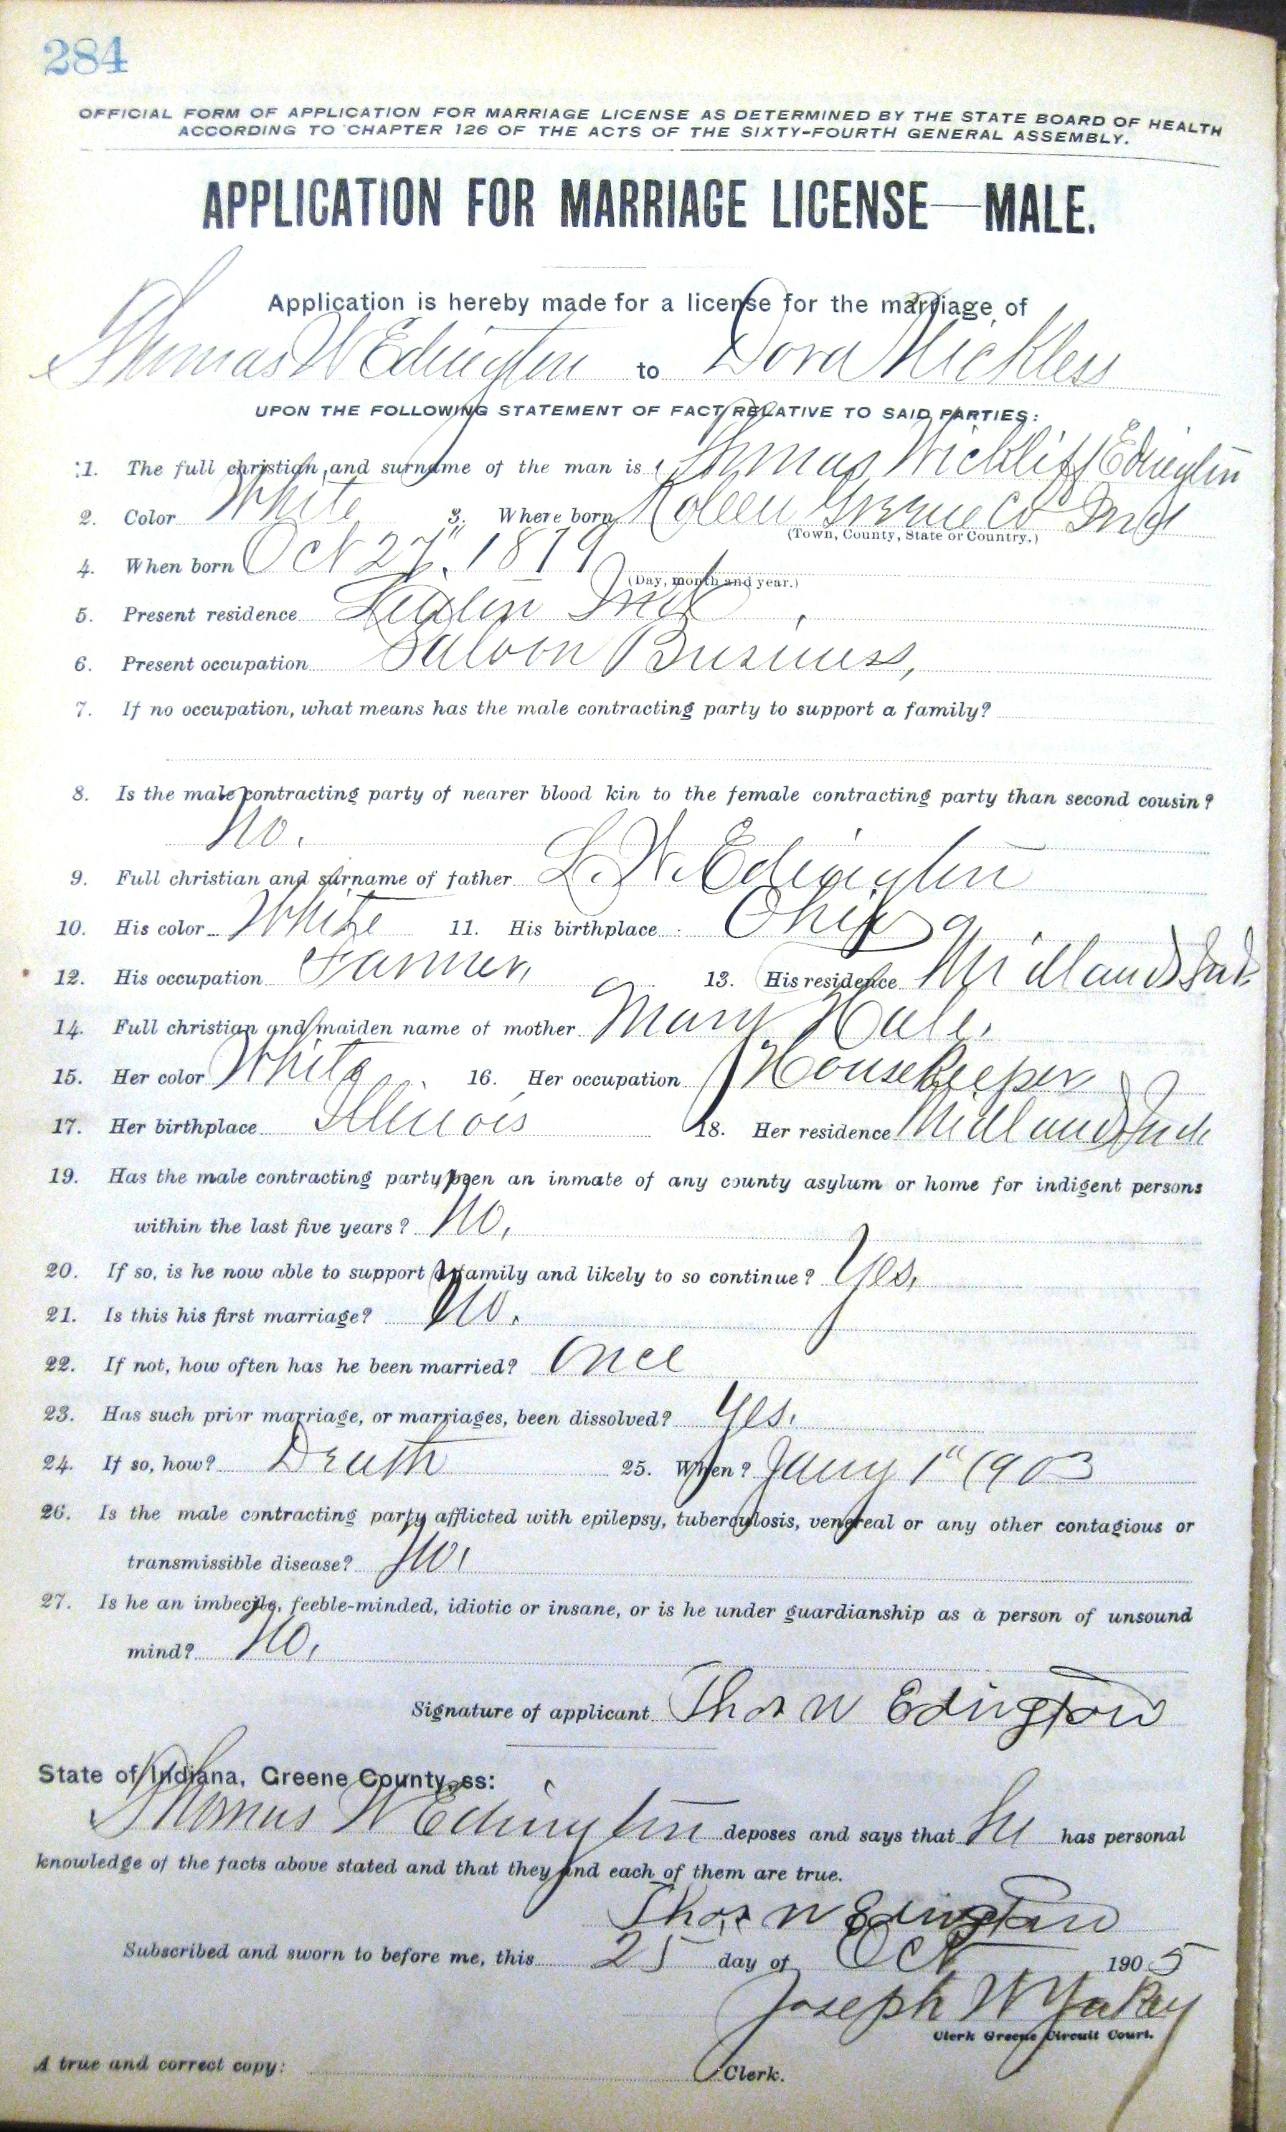 284
OFFICIAL FORM OF APPLICATION FOR MARRIAGE LICENSE AS DETERMINED BY THE STATE BOARD OF HEALTH
ACCORDING TO CHAPTER 126 OF THE ACTS OF THE SIXTY-FOURTH GENERAL ASSEMBLY.
APPLICATION FOR MARRIAGE LICENSE—MALE.
Application is hereby made for a license for the marriage of
Thomas W Edington to Dora Nickless
UPON THE FOLLOWING STATEMENT OF FACT RELATIVE TO SAID PARTIES:
1. The full christian and surname of the man is Thomas Wickliff Edington
2. Color White 3. Where born Koleen Greene Co Ind
(Town, County, State or Country.)
4. When born Oct 27" 1879
(Day, month and year.)
5. Present residence Ind
6. Present occupation Saloon Business,
7. If no occupation, what means has the male contracting party to support a family?
8. Is the male contracting party of nearer blood kin to the female contracting party than second cousin?
No.
9. Full christian and surname of father L. W. Edington
10. His color White 11. His birthplace Ohio
12. His occupation Farmer, 13. His residence Midland Ind.
14. Full christian and maiden name of mother Mary Hale,
15. Her color White 16. Her occupation Housekeeper
17. Her birthplace Illinois 18. Her residence Midland Ind
19. Has the male contracting party been an inmate of any county asylum or home for indigent persons
within the last five years? No,
20. If so, is he now able to support a family and likely to so continue? Yes,
21. Is this his first marriage? No.
22. If not, how often has he been married? Once
23. Has such prior marriage, or marriages, been dissolved? Yes.
24. If so, how? Death 25. When? Jany 1" 1903
26. Is the male contracting party afflicted with epilepsy, tuberculosis, venereal or any other contagious or
transmissible disease? No,
27. Is he an imbecile, feeble-minded, idiotic or insane, or is he under guardianship as a person of unsound
mind? No,
Signature of applicant Thos W Edington
State of Indiana, Greene County, ss:
Thomas W Edington deposes and says that he has personal
knowledge of the facts above stated and that they and each of them are true.
Thos W Edington
Subscribed and sworn to before me, this 25 day of Oct 1905
Joseph W Yakey
Clerk Greene Circuit Court.
A true and correct copy: Clerk.